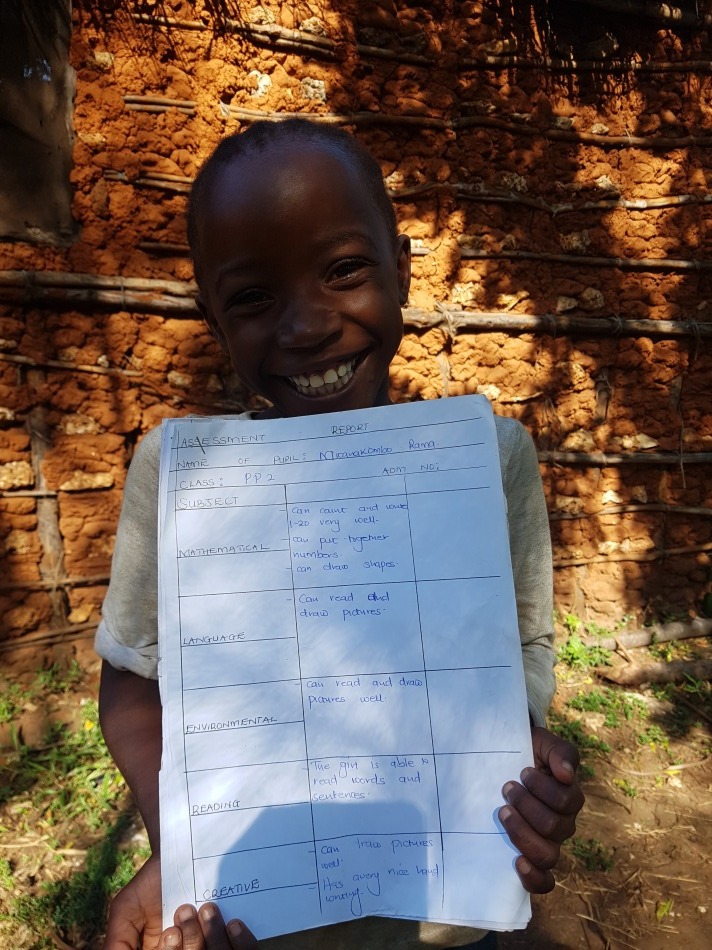 ASSESSMENT REPORT
NAME OF PUPIL: Mwanakombo Rama
CLASS: PP2 ADM NO:
SUBJECT
MATHEMATICAL
- can count and
1-20 very well.
- can put together
numbers.
- can draw shapes.
LANGUAGE
- Can read and
draw pictures.
ENVIRONMENTAL
- can read and draw
pictures well.
READING
- The girl is able to
read words and
sentences.
CREATIVE
- can draw pictures
well.
- Has avery nice hand
writing.